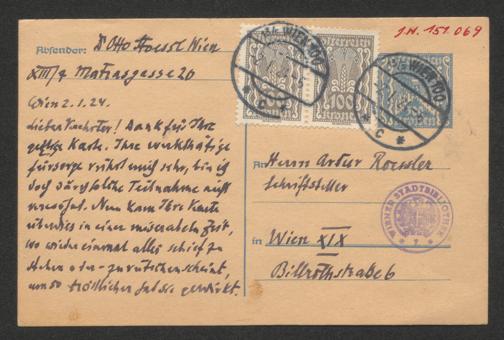 J.N. 151.069
Absender: Dr Otto Stoessl Wien
XIII/7 Matrasgasse 20
Wien 2.1.24.
Lieber Verehrter! Dank für Ihre
gütige Karte. Ihre werkthätige
Fürsorge rührt mich sehr, bin ich
doch durch solche Teilnahme nicht
verwöhnt. Nun kam Ihre Karte
überdies in einer miserablen Zeit,
wo wieder einmal alles schief zu
stehen oder zu rutschen scheint,
um so tröstlicher hat sie gewirkt.
WIEN 100
100
100
KRONEN
WIEN 100
An Herrn Artur Roessler
Schriftsteller
in Wien XIX
Billrothstrasse 6
WIENER STADTBIBLIOTHEK